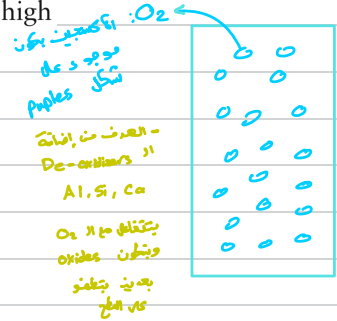 high
O2:
الأكسجين بكون
موجود على
شكل
puples
- الهدف من إضافة
الـ De-oxidisers
Al, Si, Ca
بتتفاعل مع الـ O2
وبتكون oxides
بعدين بتطفو
على السطح